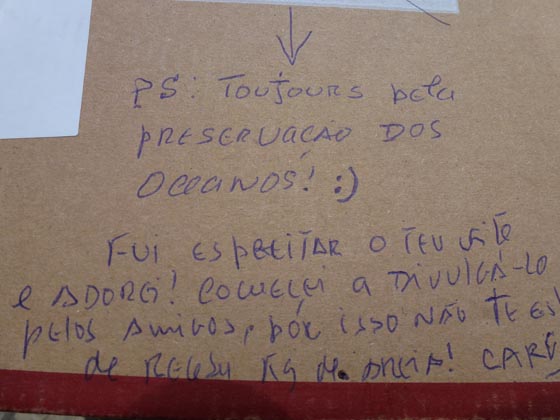 PS: Toujours pela
PRESERVAÇÃO DOS
OCEANOS! :)
FUI ESPREITAR O TEU SITE
e ADOREI! COMECEI A DIVULGÁ-LO
pelos AMIGOS, por isso NÃO TE ES
de RECEBER Kg de AREIA! CARO